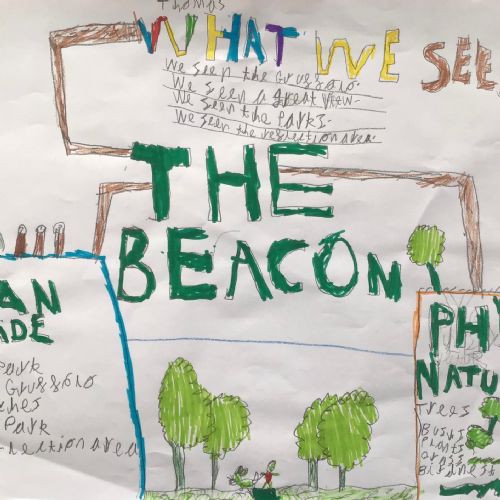 Thomas
WHAT WE SEE
We seen the Gruffalo.
We seen a great view.
We seen the Parks.
We seen the reflection area.
THE
BEACON
AN
ADE
Park
Gruffalo
ches
Park
lection area
PHY
NATU
Trees
Bushs
Plants
Grass